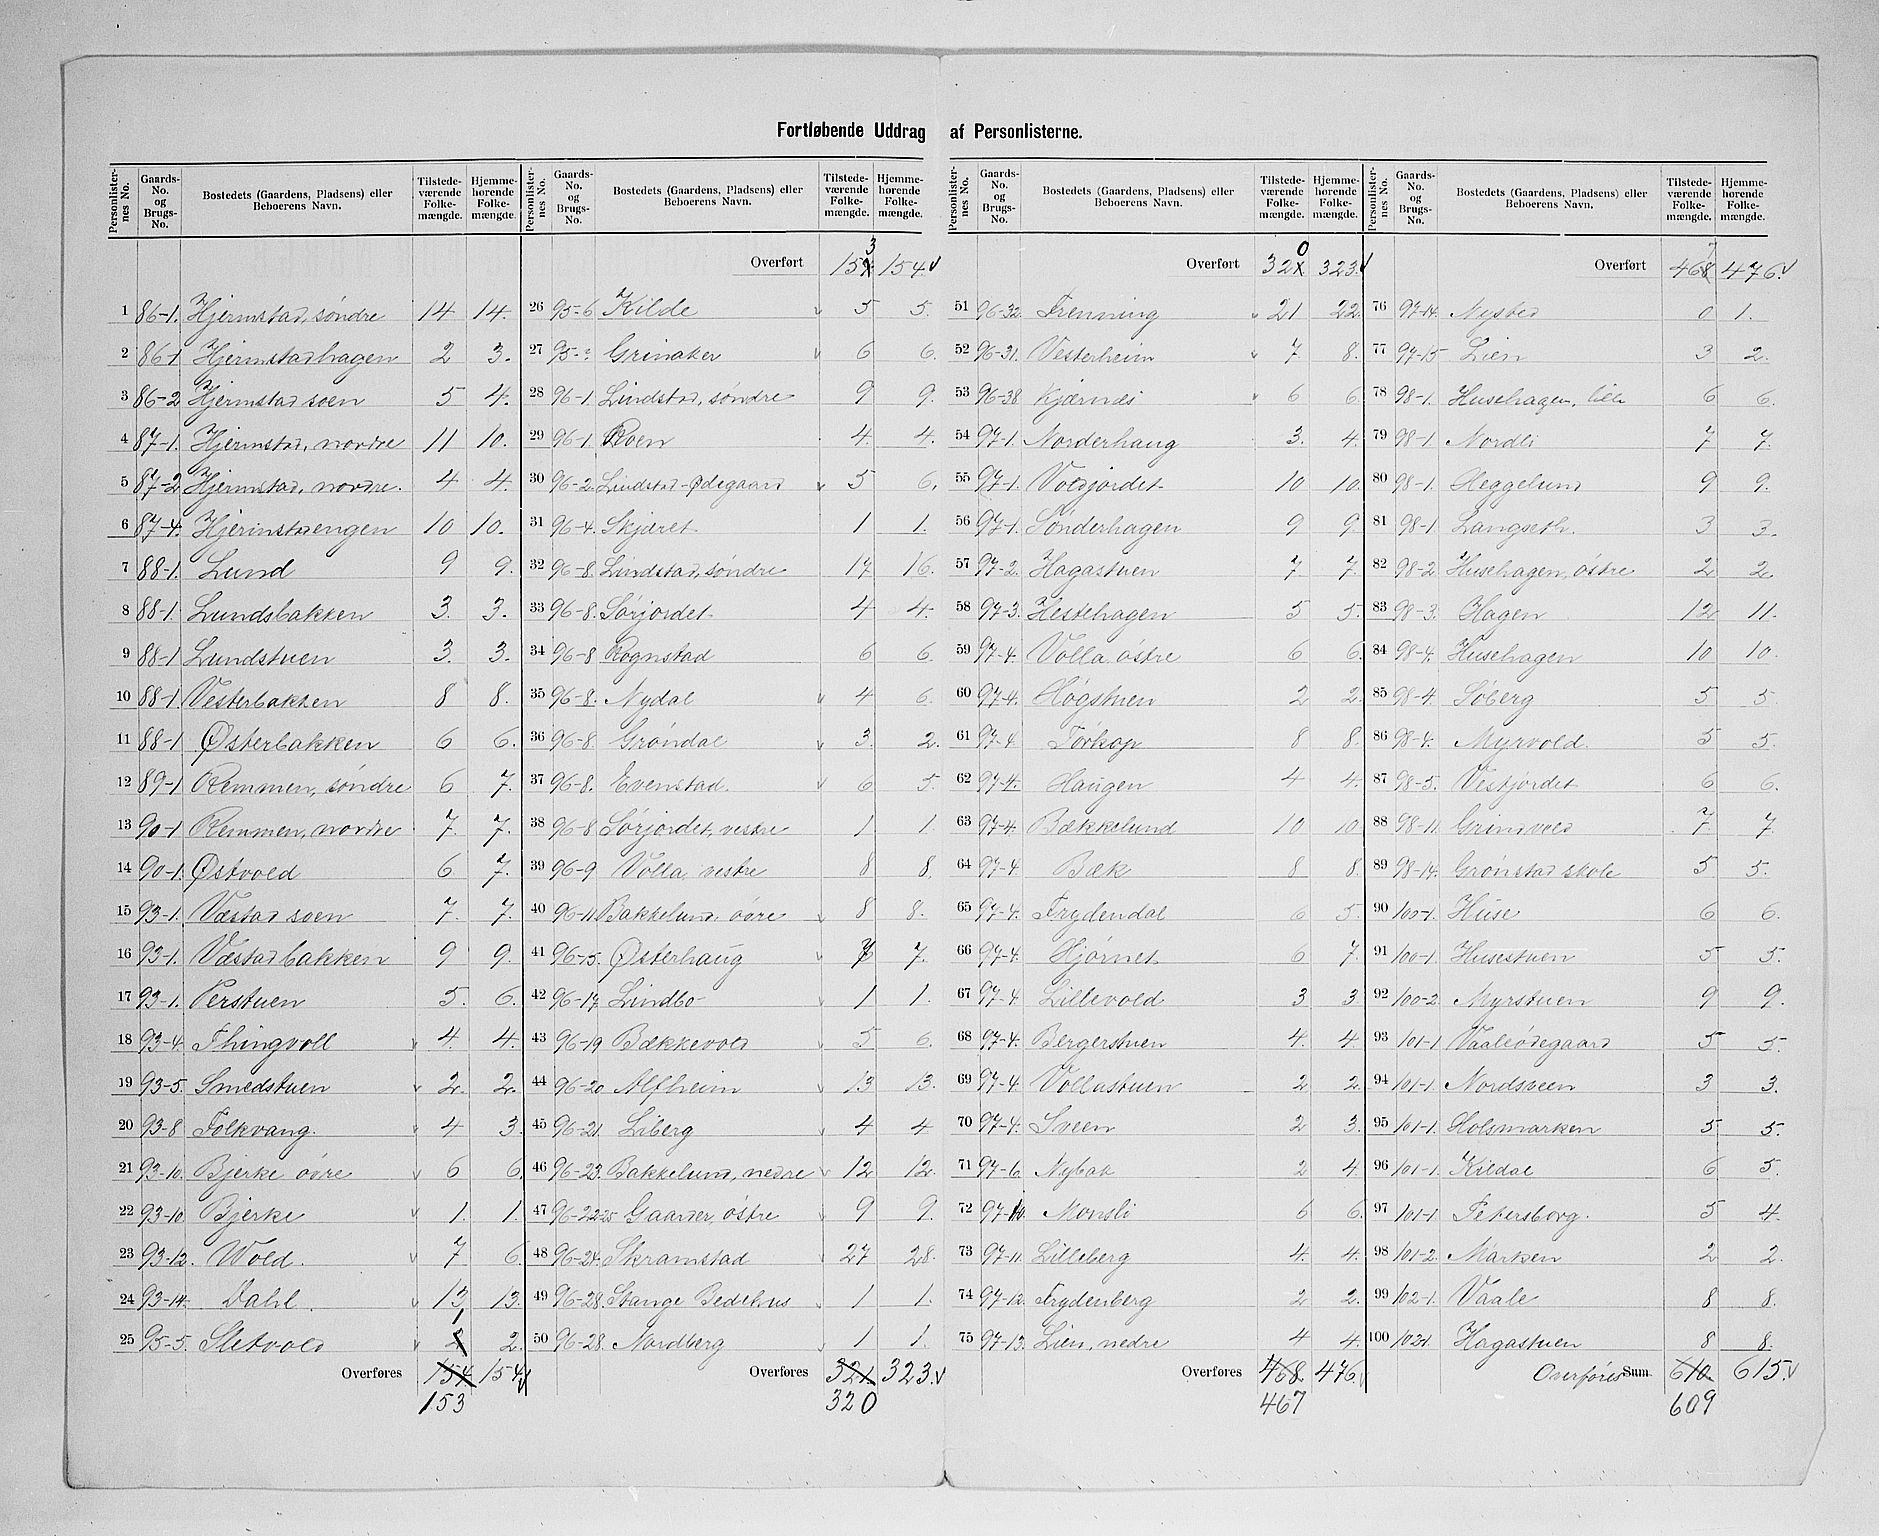 Fortløbende Uddrag af Personlisterne.
Personlisternes No. Gaards-No. og Brugs-No. Bostedets (Gaardens, Pladsens) eller Beboerens Navn. Tilstedeværende Folkemængde. Hjemmehørende Folkemængde.
1 86-1. Hjermstad, søndre 14 14.
2 86-1 Hjermstadhagen 2 3.
3 86-2 Hjermstad soen 5 4.
4 87-1. Hjermstad, nordre 11 10.
5 87-2 Hjermstad, nordre. 4 4.
6 87-4. Hjermstadengen 10 10.
7 88-1. Lund 9 9.
8 88-1. Lundsbakken 3. 3.
9 88-1 Lundstuen 3. 3.
10 88-1 Vesterbakken 8 8.
11 88-1 Østerbakken 6 6.
12 89-1 Remmen, søndre 6 7.
13 90-1 Remmen, nordre 7. 7.
14 90-1. Østvold 6 7.
15 93-1. Væstad soen 7. 7.
16 93-1. Væstadbakken 9 9.
17 93-1. Perstuen 5. 6.
18 93-4. Thingvoll v 4. 4.
19 93-5. Smedstuen v 2. 2.
20 93-8 Folkvang. v 4 3.
21 93-10. Bjerke øvre v 6 6.
22 93-10 Bjerke v 1. 1.
23 93-12. Wold. v 7 6.
24 93-14. Dahl. v 13 13.
25 95-5. Sletvold v 1 2.
Overføres 154 154 v
153
Personlisternes No. Gaards-No. og Brugs-No. Bostedets (Gaardens, Pladsens) eller Beboerens Navn. Tilstedeværende Folkemængde. Hjemmehørende Folkemængde.
Overført 153 154 v
26 95-6 Kilde v 5 5.
27 95- Grinaker v 6 6.
28 96-1. Lindstad, søndre 9 9.
29 96-1. Roen 4. 4.
30 96-2. Lindstad-Ødegaard v 5 6.
31 96-4. Skjæret 1 1.
32 96-8. Lindstad, søndre 17 16.
33 96-8. Sørjordet 4 4.
34 96-8 Rognstad 6 6.
35 96-8. Nydal v 4 6.
36 96-8. Grøndal v 3. 2.
37 96-8. Evenstad. v 6 5.
38 96-8 Sørjordet, vestre 1 1.
39 96-9 Volla, vestre 8 8.
40 96-11. Bakkelund, øvre v 8 8.
41 96-15. Østerhaug v 7 7.
42 96-17. Lindbo v 1 1.
43 96-19 Bækkevold v 5 6.
44 96-20 Alfheim v 13 13.
45 96-21. Liberg v 4 4
46 96-23. Bakkelund, nedre v 12 12.
47 96-22-25 Gaarder, østre v 9 9.
48 96-24. Skramstad v 27 28.
49 96-28. Stange Bedehus v 1 1.
50 96-28. Nordberg v 1 1.
Overføres 321. 323. v
320
Personlisternes No. Gaards-No. og Brugs-No. Bostedets (Gaardens, Pladsens) eller Beboerens Navn. Tilstedeværende Folkemængde. Hjemmehørende Folkemængde.
Overført 320 323. v
51 96-32. Frenning v 21 22.
52 96-31. Vesterheim v 7 8.
53 96-38 Kjærnæs v 6 6.
54 97-1. Norderhaug 3. 4.
55 97-1. Voldjordet 10 10.
56 97-1. Sønderhagen 9 9.
57 97-2. Hagastuen 7. 7.
58 97-3. Hestehagen 5 5.
59 97-4. Volla, østre 6 6.
60 97-4. Høgstuen 2 2.
61 97-4. Tørkop 8 8.
62 97-4. Haugen 4 4.
63 97-4. Bækkelund 10 10.
64 97-4. Bæk 8 8.
65 97-4. Frydendal 6 5.
66 97-4. Hjørnet 6 7.
67 97-4 Lillevold 3 3
68 97-4. Bergerstuen 4. 4
69 97-4. Vollastuen 2 2.
70 97-4. Sveen 2 3.
71 97-6. Nybak 2 4.
72 97-10. Monsli 6 6.
73 97-11. Lilleberg 4. 4.
74 97-12. Frydenberg 2 2.
75 97-13. Lien, nedre 4 4.
Overføres 468. 476. v
467
Personlisternes No. Gaards-No. og Brugs-No. Bostedets (Gaardens, Pladsens) eller Beboerens Navn. Tilstedeværende Folkemængde. Hjemmehørende Folkemængde.
Overført 467 476. v
76 97-14. Nysted 0 1.
77 97-15 Lien 3 2.
78 98-1. Husehagen, lille 6 6.
79 98-1 Nordli 7 7.
80 98-1. Heggelund 9 9.
81 98-1 Langseth. 3 3.
82 98-2 Husehagen, østre 2 2
83 98-3. Hagen 12 11.
84 98-4. Husehagen 10 10.
85 98-4 Søberg 5 5
86 98-4. Myrvold. 5 5.
87 98-5. Vestjordet 6 6.
88 98-11. Grindvold 7. 7.
89 98-14. Grønstad skole 5 5.
90 100-1. Huse 6 6.
91 100-1. Husestuen 5 5.
92 100-2. Myrstuen 9 9.
93 101-1 Vaaleødegaard 5 5.
94 101-1. Nordsveen 3 3.
95 101-1. Holsmarken 5 5.
96 101-1. Kildal 6 5.
97 101-1. Petersborg. 5 4.
98 101-2. Marken 2 2.
99 102-1. Vaale 8 8.
100 102-1. Hagastuen 8 8.
Overføres Sum 610. 615. v
609